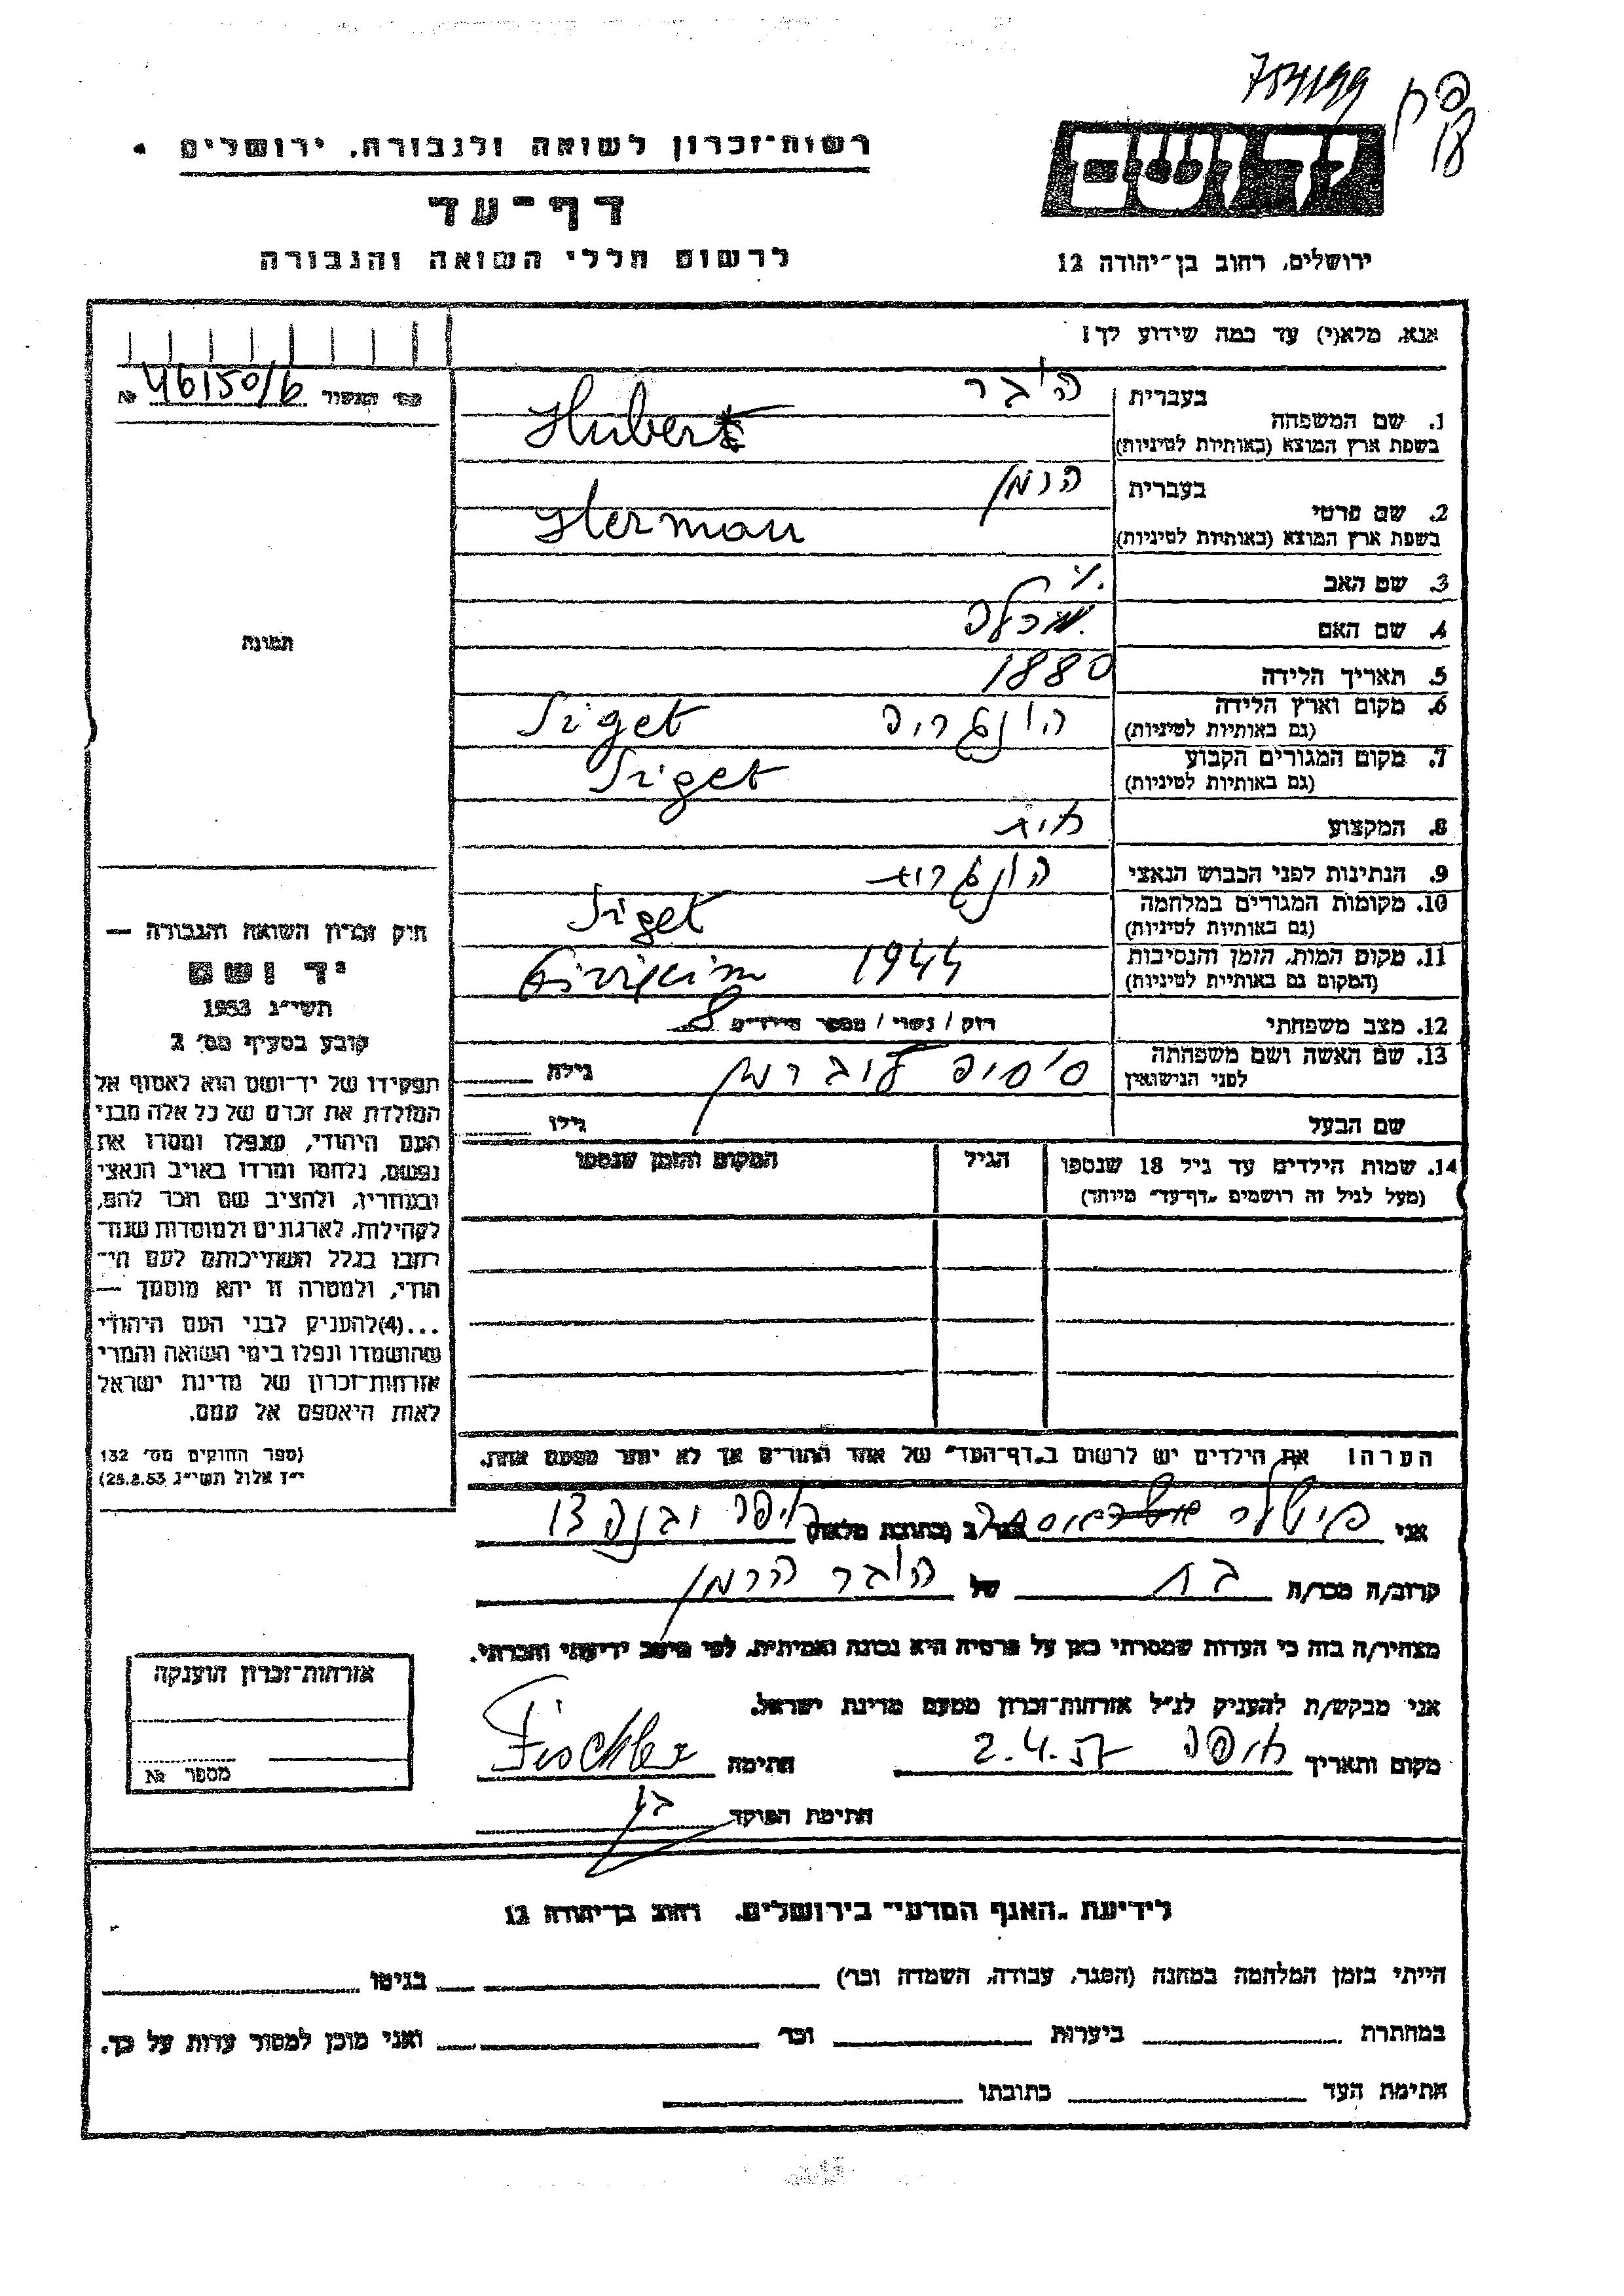 רשות־זכרון לשואה ולגבורה, ירושלים
דף־עד
לרשום חללי השואה והגבורה
יד ושם
ירושלים, רחוב בן־יהודה 12
אנא, מלא(י) עד כמה שידוע לך!
מס' האשור 46150/6 №
1. שם המשפחה
בעברית הובר
בשפת ארץ המוצא (באותיות לטיניות) Huber
2. שם פרטי
בעברית הרמן
בשפת ארץ המוצא (באותיות לטיניות) Herman
3. שם האב
4. שם האם
5. תאריך הלידה 1880
6. מקום וארץ הלידה הונגריה Siget
(גם באותיות לטיניות)
7. מקום המגורים הקבוע Siget
(גם באותיות לטיניות)
8. המקצוע חיט
9. הנתינות לפני הכבוש הנאצי הונגרית
10. מקומות המגורים במלחמה Siget
(גם באותיות לטיניות)
11. מקום המות, הזמן והנסיבות 1944
(המקום גם באותיות לטיניות)
12. מצב משפחתי רווק / נשוי / מספר הילדים 8
13. שם האשה ושם משפחתה ליברמן גילה
לפני הנישואין
שם הבעל גילו
14. שמות הילדים עד גיל 18 שנספו הגיל המקום והזמן שנספו
(מעל לגיל זה רושמים „דף־עד” מיוחד)
הערה: את הילדים יש לרשום ב„דף־העד” של אחד ההורים אך לא יותר מפעם אחת.
אני פישלר הגר ב (כתובת מלאה) חיפה יבנה 13
קרוב/ה מכר/ה בת של הובר הרמן
מצהיר/ה בזה כי העדות שמסרתי כאן על פרטיה היא נכונה ואמיתית, לפי מיטב ידיעתי והכרתי.
אני מבקש/ת להעניק לנ״ל אזרחות־זכרון מטעם מדינת ישראל.
מקום ותאריך חיפה 2.4.57 חתימה Fischler
חתימת הפוקד
תמונה
חוק זכרון השואה והגבורה —
יד ושם
תשי״ג 1953
קובע בסעיף מס' 2
תפקידו של יד־ושם הוא לאסוף אל
המולדת את זכרם של כל אלה מבני
העם היהודי, שנפלו ומסרו את
נפשם, נלחמו ומרדו באויב הנאצי
ובעוזריו, ולהציב שם וזכר להם,
לקהילות, לארגונים ולמוסדות שנח־
רבו בגלל השתייכותם לעם הי־
הודי, ולמטרה זו יהא מוסמך —
...(4)להעניק לבני העם היהודי
שהושמדו ונפלו בימי השואה והמרי
אזרחות־זכרון של מדינת ישראל
לאות היאספם אל עמם.
(ספר החוקים מס' 132
י״ז אלול תשי״ג 28.8.53)
אזרחות־זכרון הוענקה
מספר №
לידיעת „האגף המדעי” בירושלים, רחוב בן־יהודה 12
הייתי בזמן המלחמה במחנה (הסגר, עבודה, השמדה וכו') בגיטו
במחתרת ביערות וכו' ואני מוכן למסור עדות על כך.
חתימת העד כתובתו